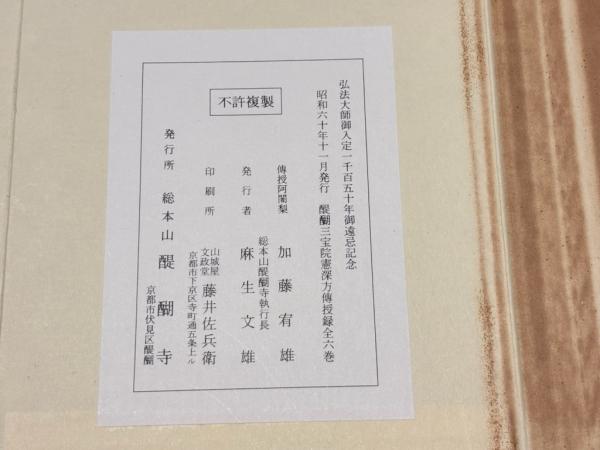 弘法大師御入定一千百五十年御遠忌記念
昭和六十年十一月発行　醍醐三宝院憲深方傳授録全六巻
傳授阿闍梨　加藤宥雄
総本山醍醐寺執行長
発行者　麻生文雄
印刷所　山城屋文政堂　藤井佐兵衛
京都市下京区寺町通五条上ル
発行所　総本山　醍醐寺
京都市伏見区醍醐
不許複製